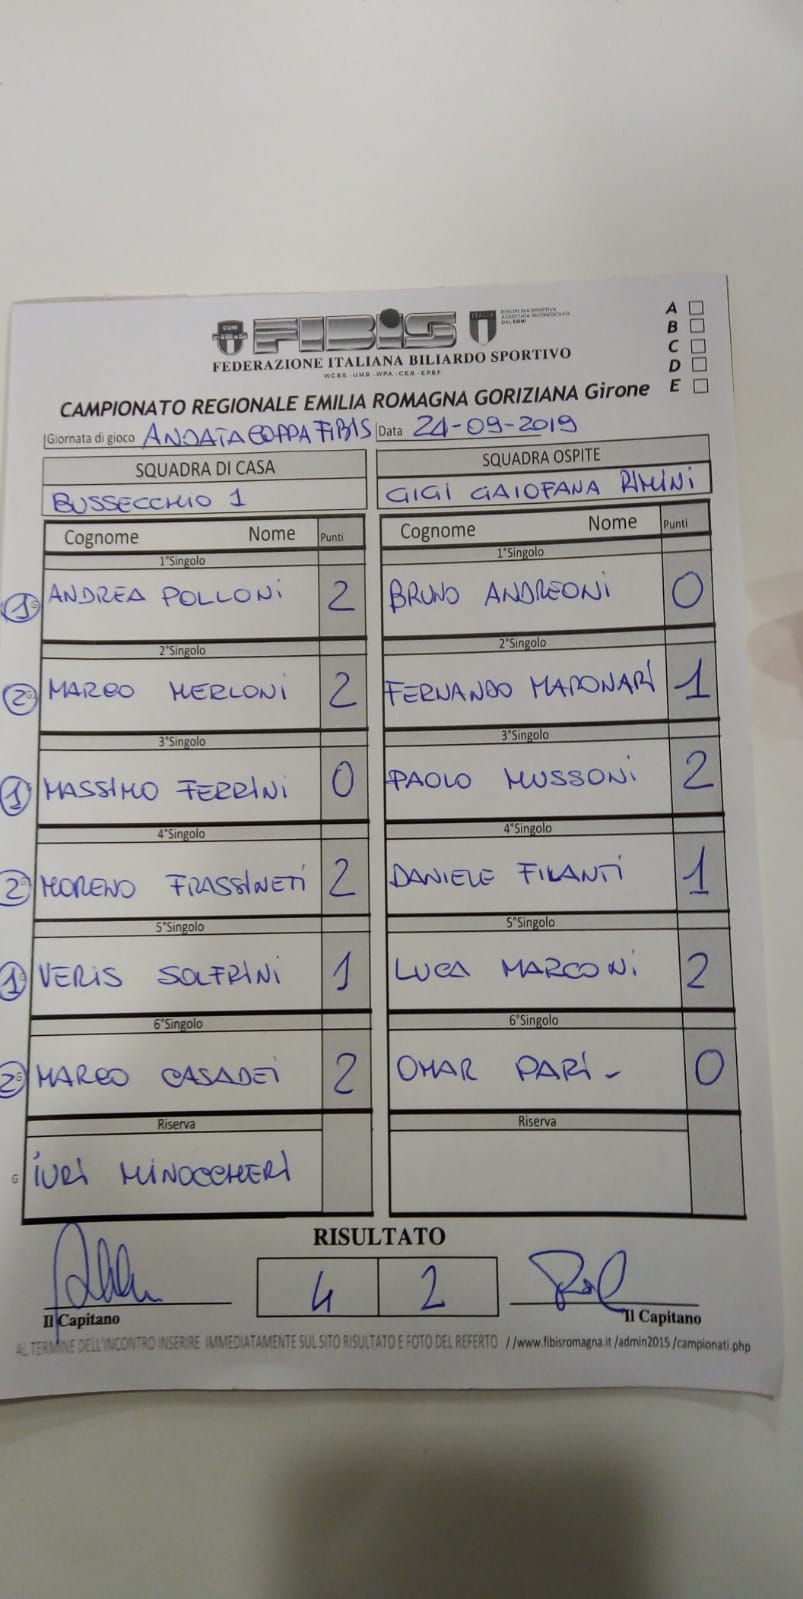 CONI
FIBiS
ITALIA
FEDERAZIONE ITALIANA BILIARDO SPORTIVO
W.C.B.S. - U.M.B. - W.P.A. - C.E.B. - E.P.B.F.
A
B
C
D
E
CAMPIONATO REGIONALE EMILIA ROMAGNA GORIZIANA Girone
Giornata di gioco ANDATA COPPA FIBIS Data 24-09-2019
SQUADRA DI CASA SQUADRA OSPITE
BUSSECCHIO 1 GIGI GAIOFANA RIMINI
Cognome Nome Punti Cognome Nome Punti
1°Singolo 1°Singolo
1 ANDREA POLLONI 2 BRUNO ANDREONI 0
2°Singolo 2°Singolo
2 MARCO MERLONI 2 FERNANDO MARONARI 1
3°Singolo 3°Singolo
1 MASSIMO FERRINI 0 PAOLO MUSSONI 2
4°Singolo 4°Singolo
2 MORENO FRASSINETI 2 DANIELE FILANTI 1
5°Singolo 5°Singolo
1 VERIS SOLFRINI 1 LUCA MARCONI 2
6°Singolo 6°Singolo
2 MARCO CASADEI 2 OMAR PARI - 0
Riserva Riserva
G IURI MINOCCHERI
RISULTATO
4 2
Il Capitano Il Capitano
AL TERMINE DELL'INCONTRO INSERIRE IMMEDIATAMENTE SUL SITO RISULTATO E FOTO DEL REFERTO //www.fibisromagna.it /admin2015 /campionati.php